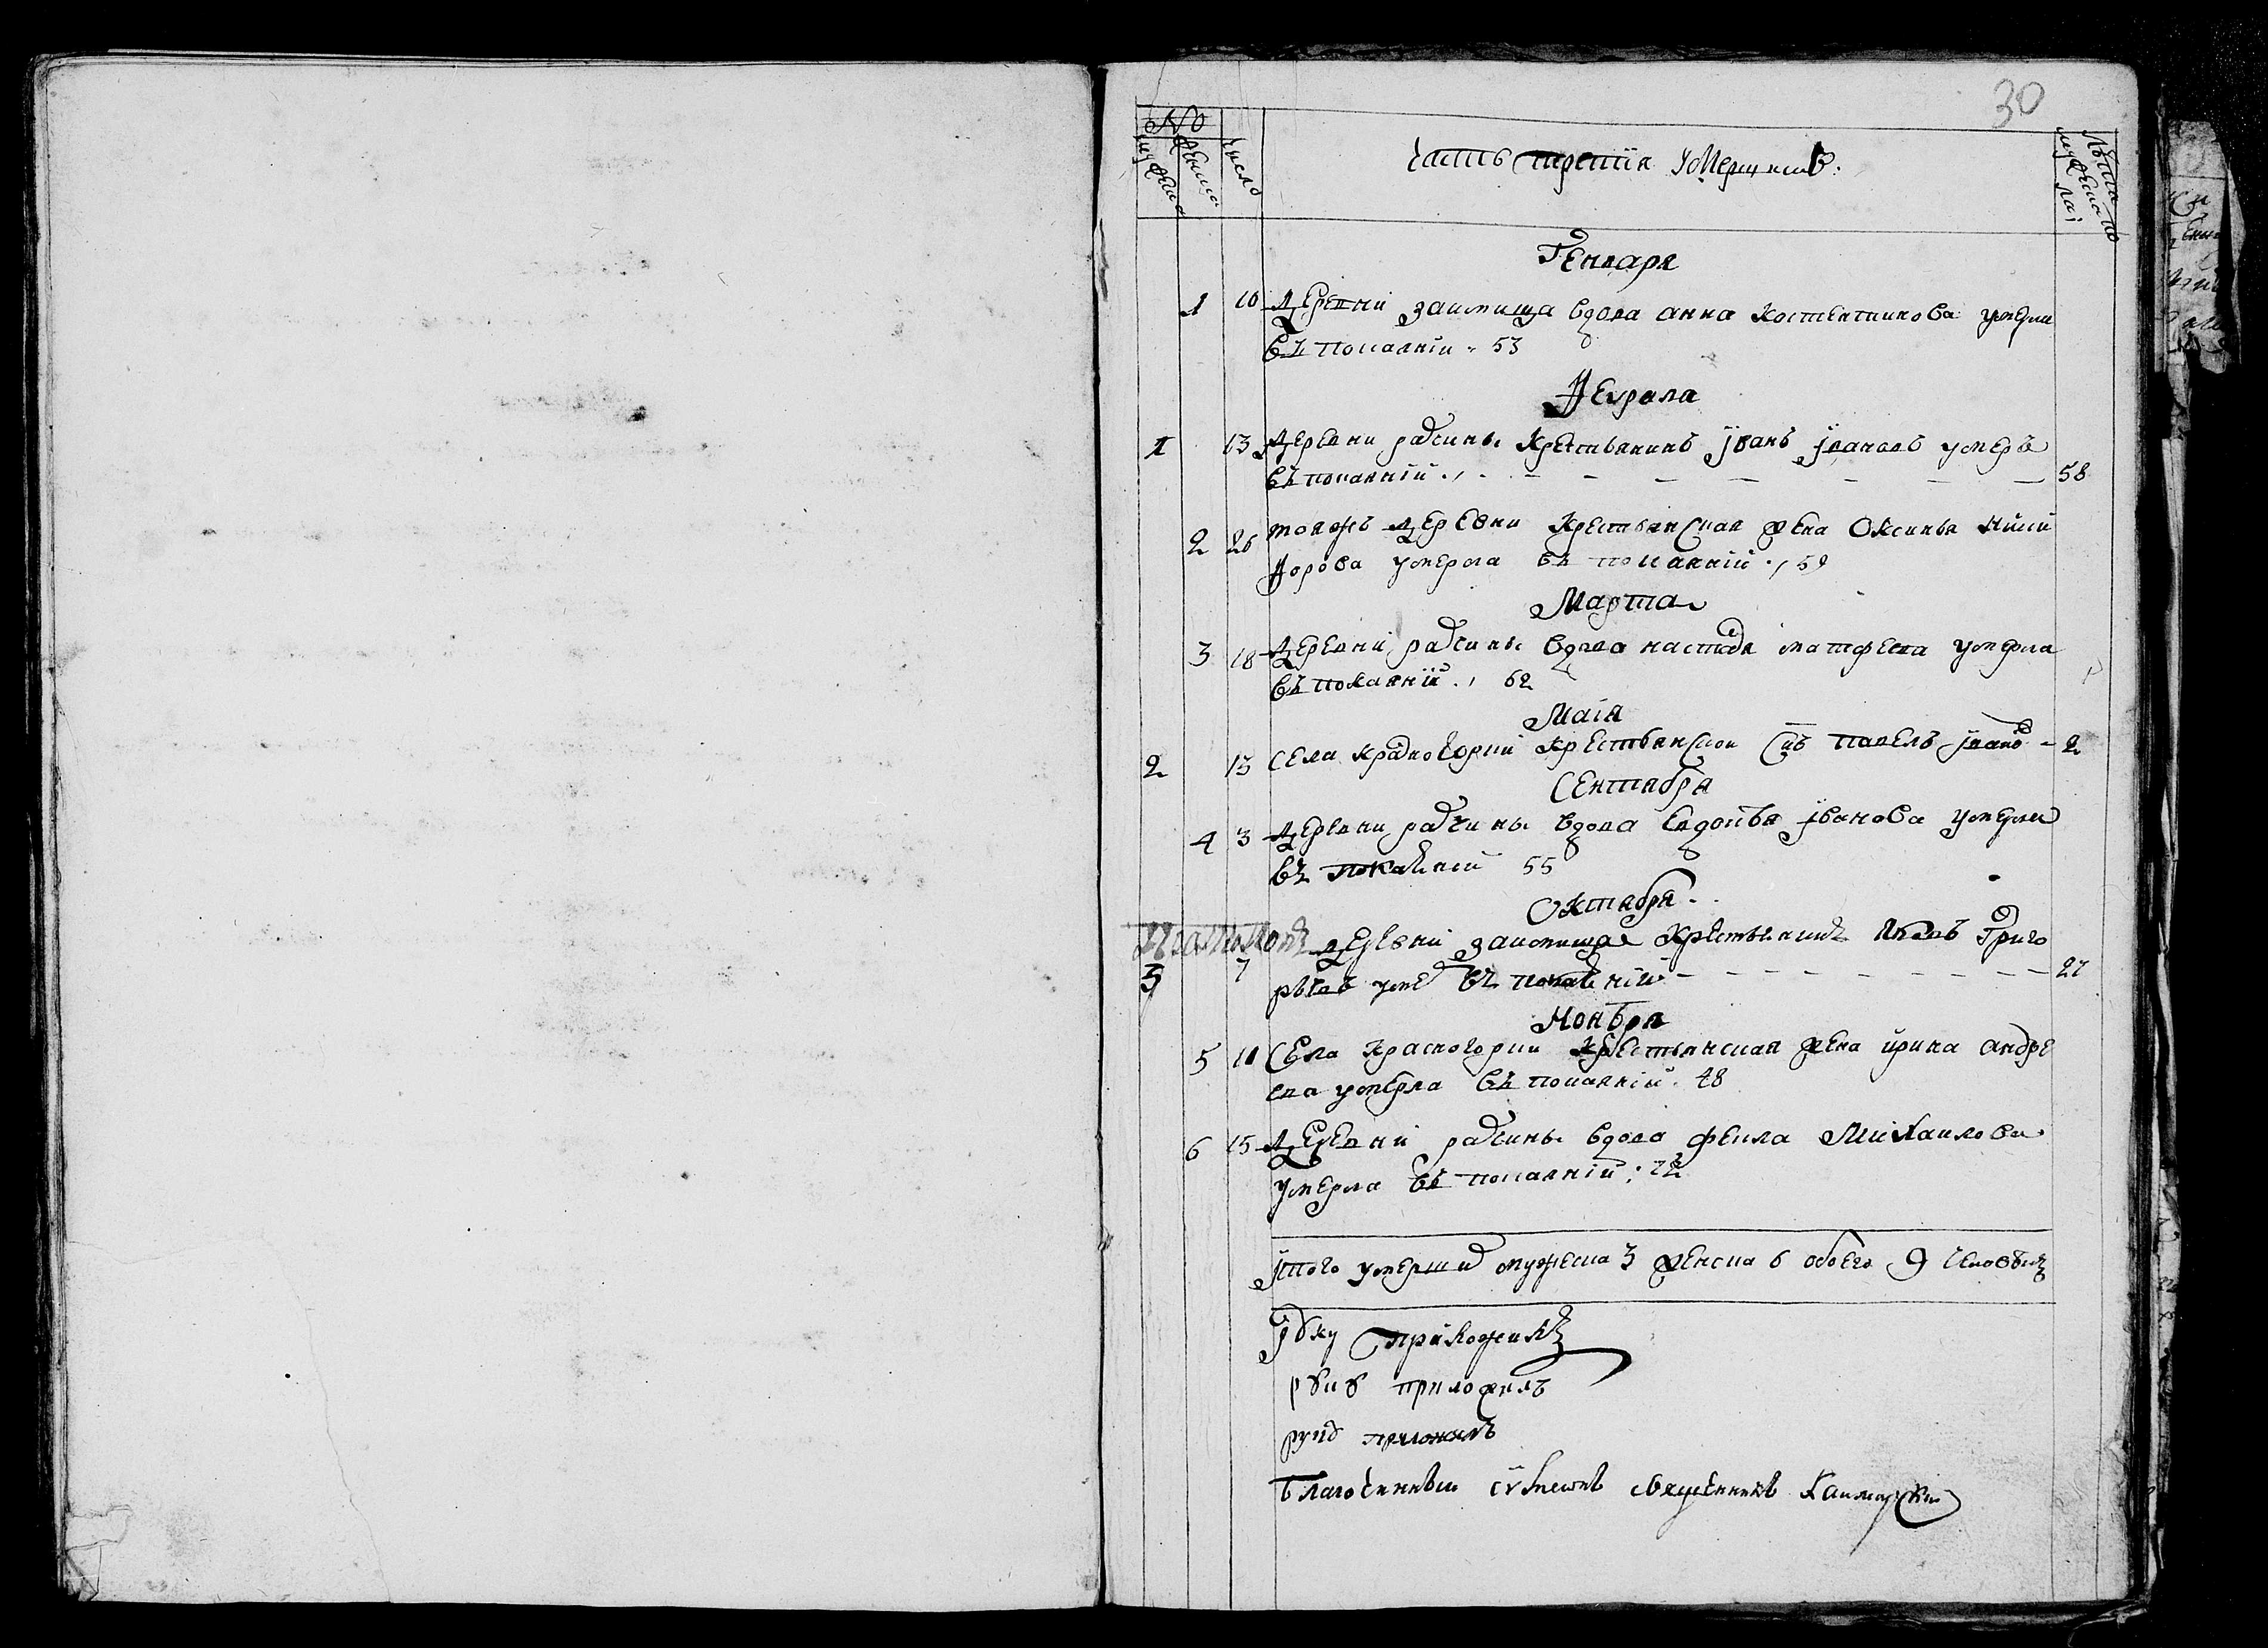 30
№
мужеска
женска
число
Часть третїя умершихъ.
Лѣта
мужеска по
ла
Генваря
1 10 Деревни займища вдова анна костентинова умерла
въ покаянїи. 53
Февраля
1 13 Деревни радчины крестьянинъ јванъ јвановъ умеръ
въ покаянїи 58
2 26 тояжъ деревни крестьянская жена Оксинья ники
форова умерла въ покаянїи 59
Марта
3 18 Деревни радчины вдова настасья матфеева умерла
въ покаянїи 62
Маїя
2 13 Села красногории крестьянской снъ павелъ јвановъ 2
Сентября
4 3 Деревни радчины вдова Евдокѣя јванова умерла
въ покаянїи 55
Октября
Деревни займища крестьянинъ Григо
3 7 рьевъ умеръ въ покаянїи 27
Ноября
5 11 Села красногории крестьянская жена ирина андре
ева умерла въ покаянїи. 48
6 15 Деревни радчины вдова фекла Михаилова
умерла въ покаянїи: 72
јтого умершихъ мужеска 3 женска 6 обоего 9 человѣкъ
руку приложилъ
руку приложилъ
руку приложилъ
Благочинный священникъ